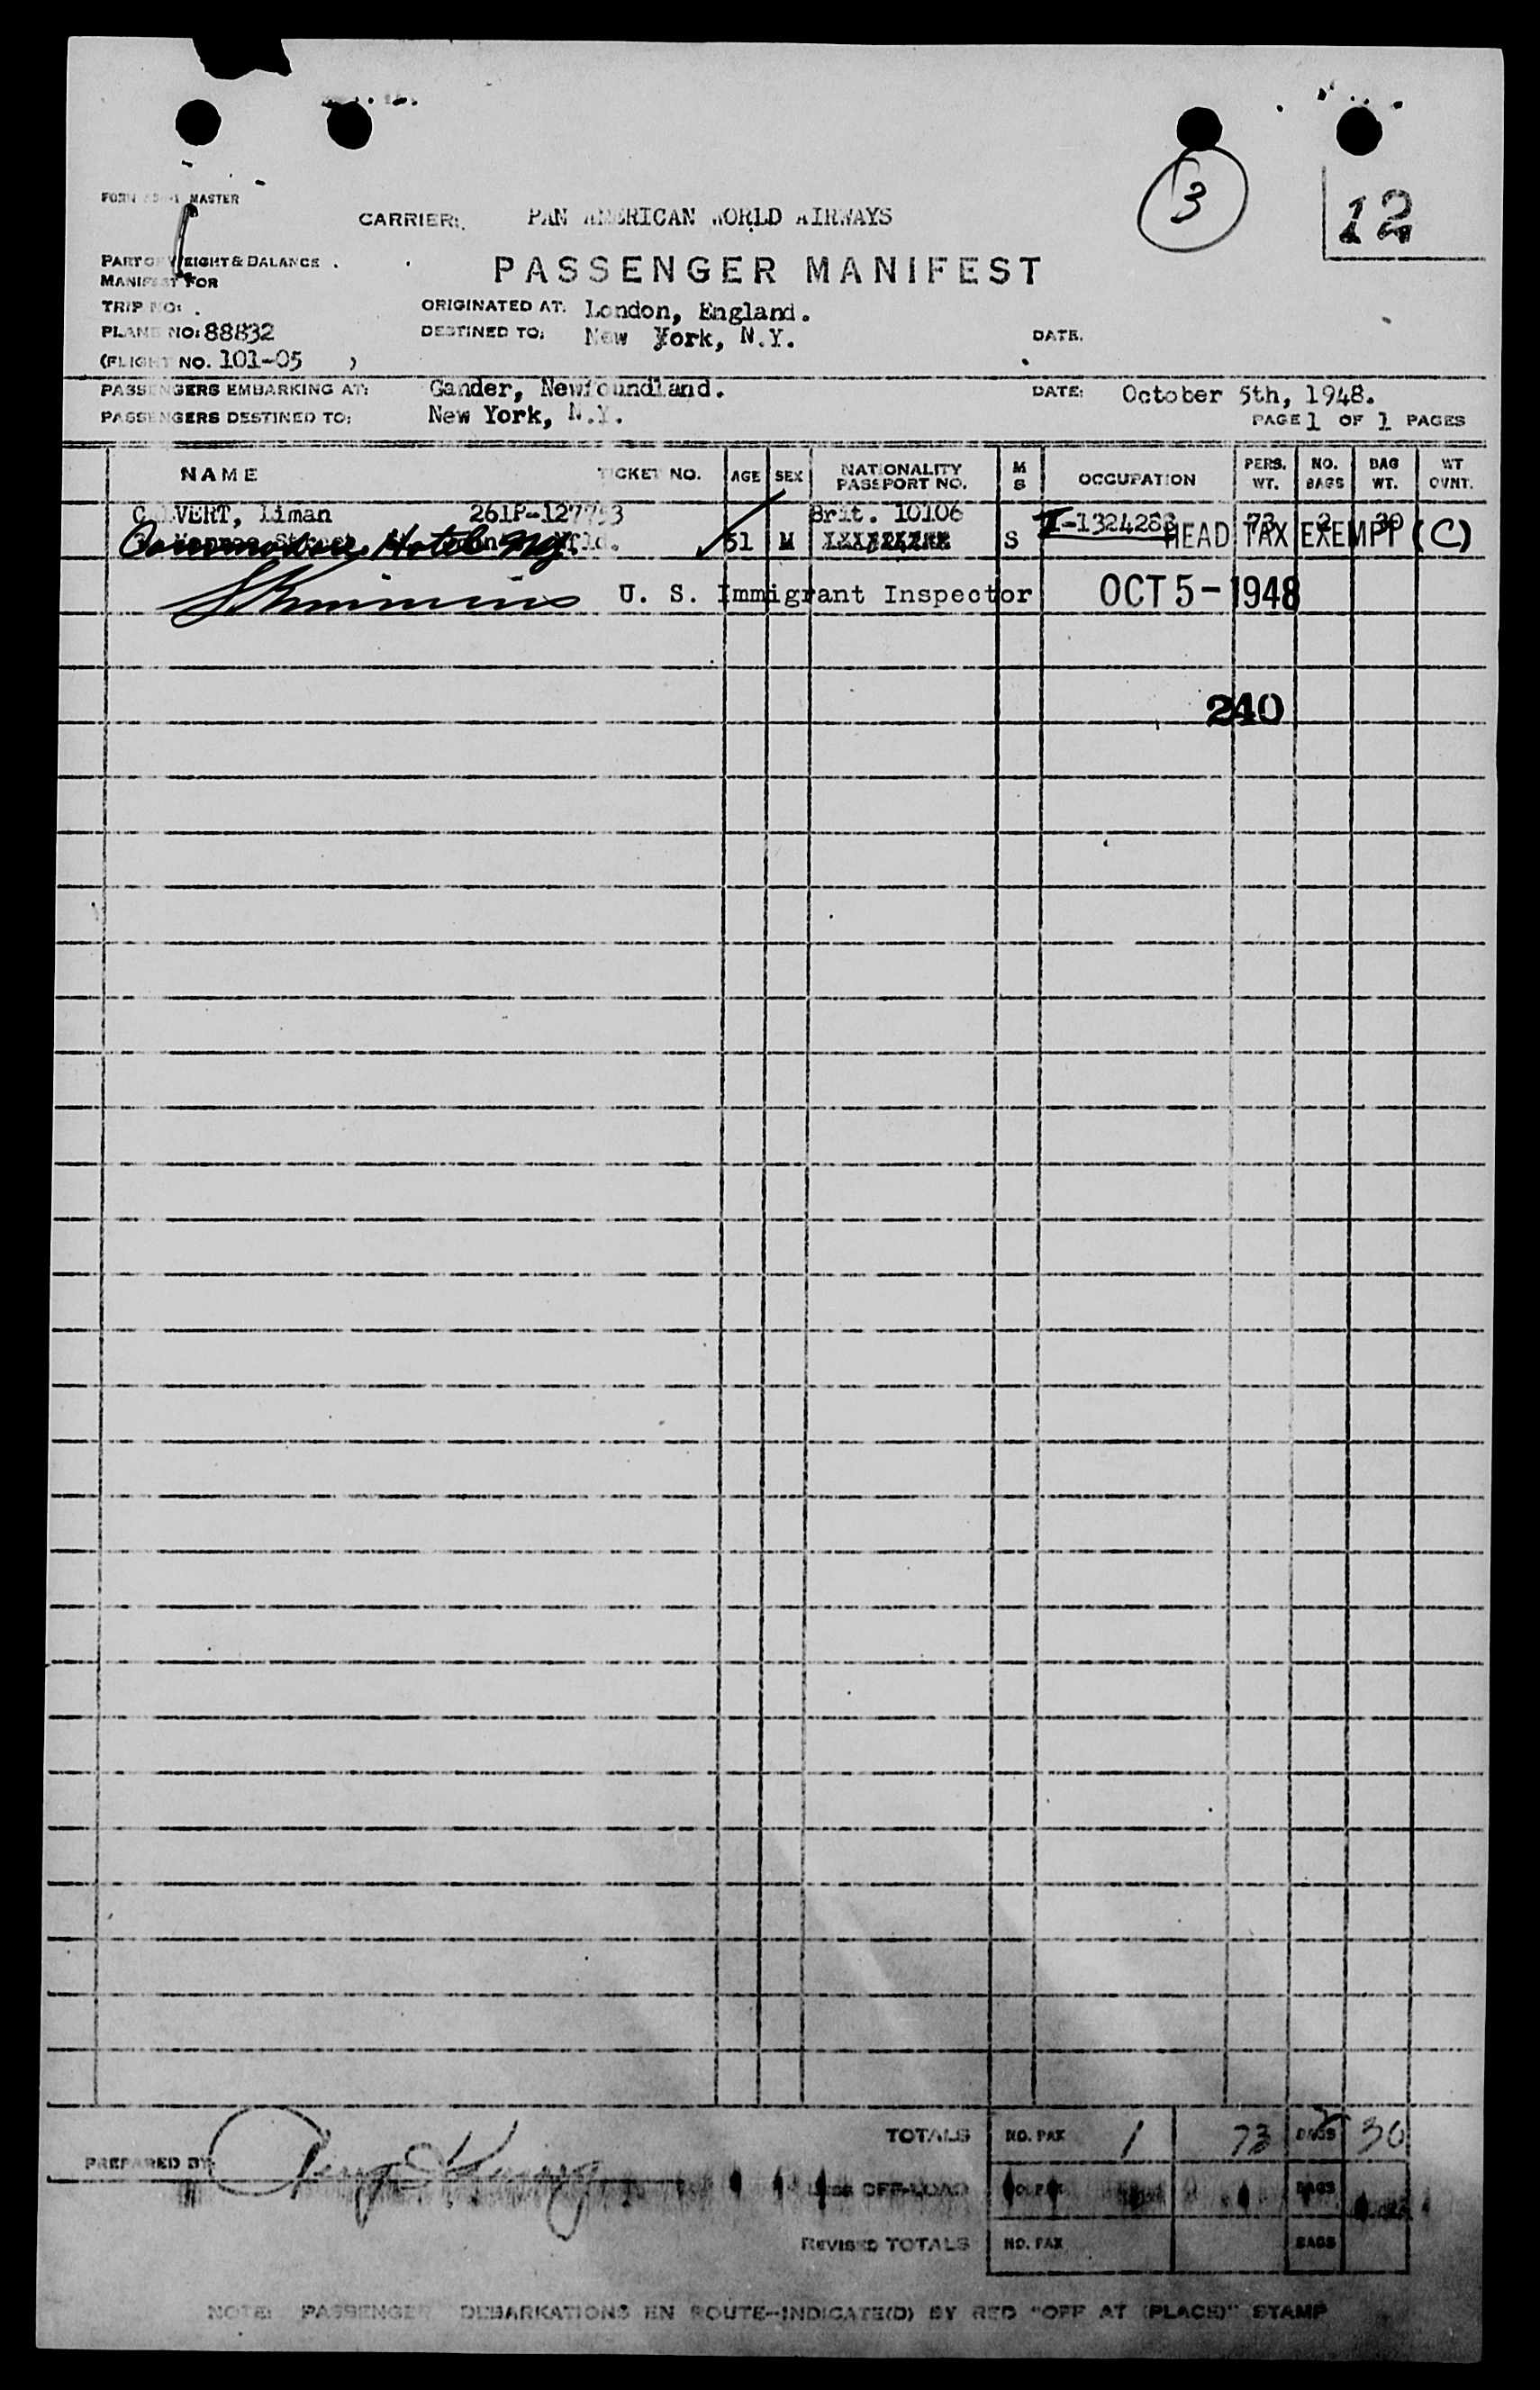 3
12
MASTER
CARRIER: PAN AMERICAN WORLD AIRWAYS
PART OF WEIGHT & BALANCE
MANIFEST FOR
PASSENGER MANIFEST
TRIP NO:
ORIGINATED AT: London, England.
PLANE NO: 88832
DESTINED TO: New York, N.Y.
DATE.
(FLIGHT NO. 101-05 )
PASSENGERS EMBARKING AT: Gander, Newfoundland. DATE: October 5th, 1948.
PASSENGERS DESTINED TO: New York, N.Y. PAGE 1 OF 1 PAGES
NAME TICKET NO. AGE SEX NATIONALITY PASSPORT NO. M S OCCUPATION PERS. WT. NO. BAGS BAG WT. WT OVNT.
CALVERT, 261P-127753 Brit. 10106 I-1324283 73 2 30
Commodore Hotel NY 51 M S HEAD TAX EXEMPT (C)
U. S. Immigrant Inspector OCT 5- 1948
240
TOTALS NO. PAX 1 73 BAGS 2 30
PREPARED BY
LESS OFF-LOAD NO. PAX BAGS
REVISED TOTALS NO. PAX BAGS
NOTE: PASSENGER DEBARKATIONS EN ROUTE--INDICATE(D) BY RED "OFF AT (PLACE)" STAMP